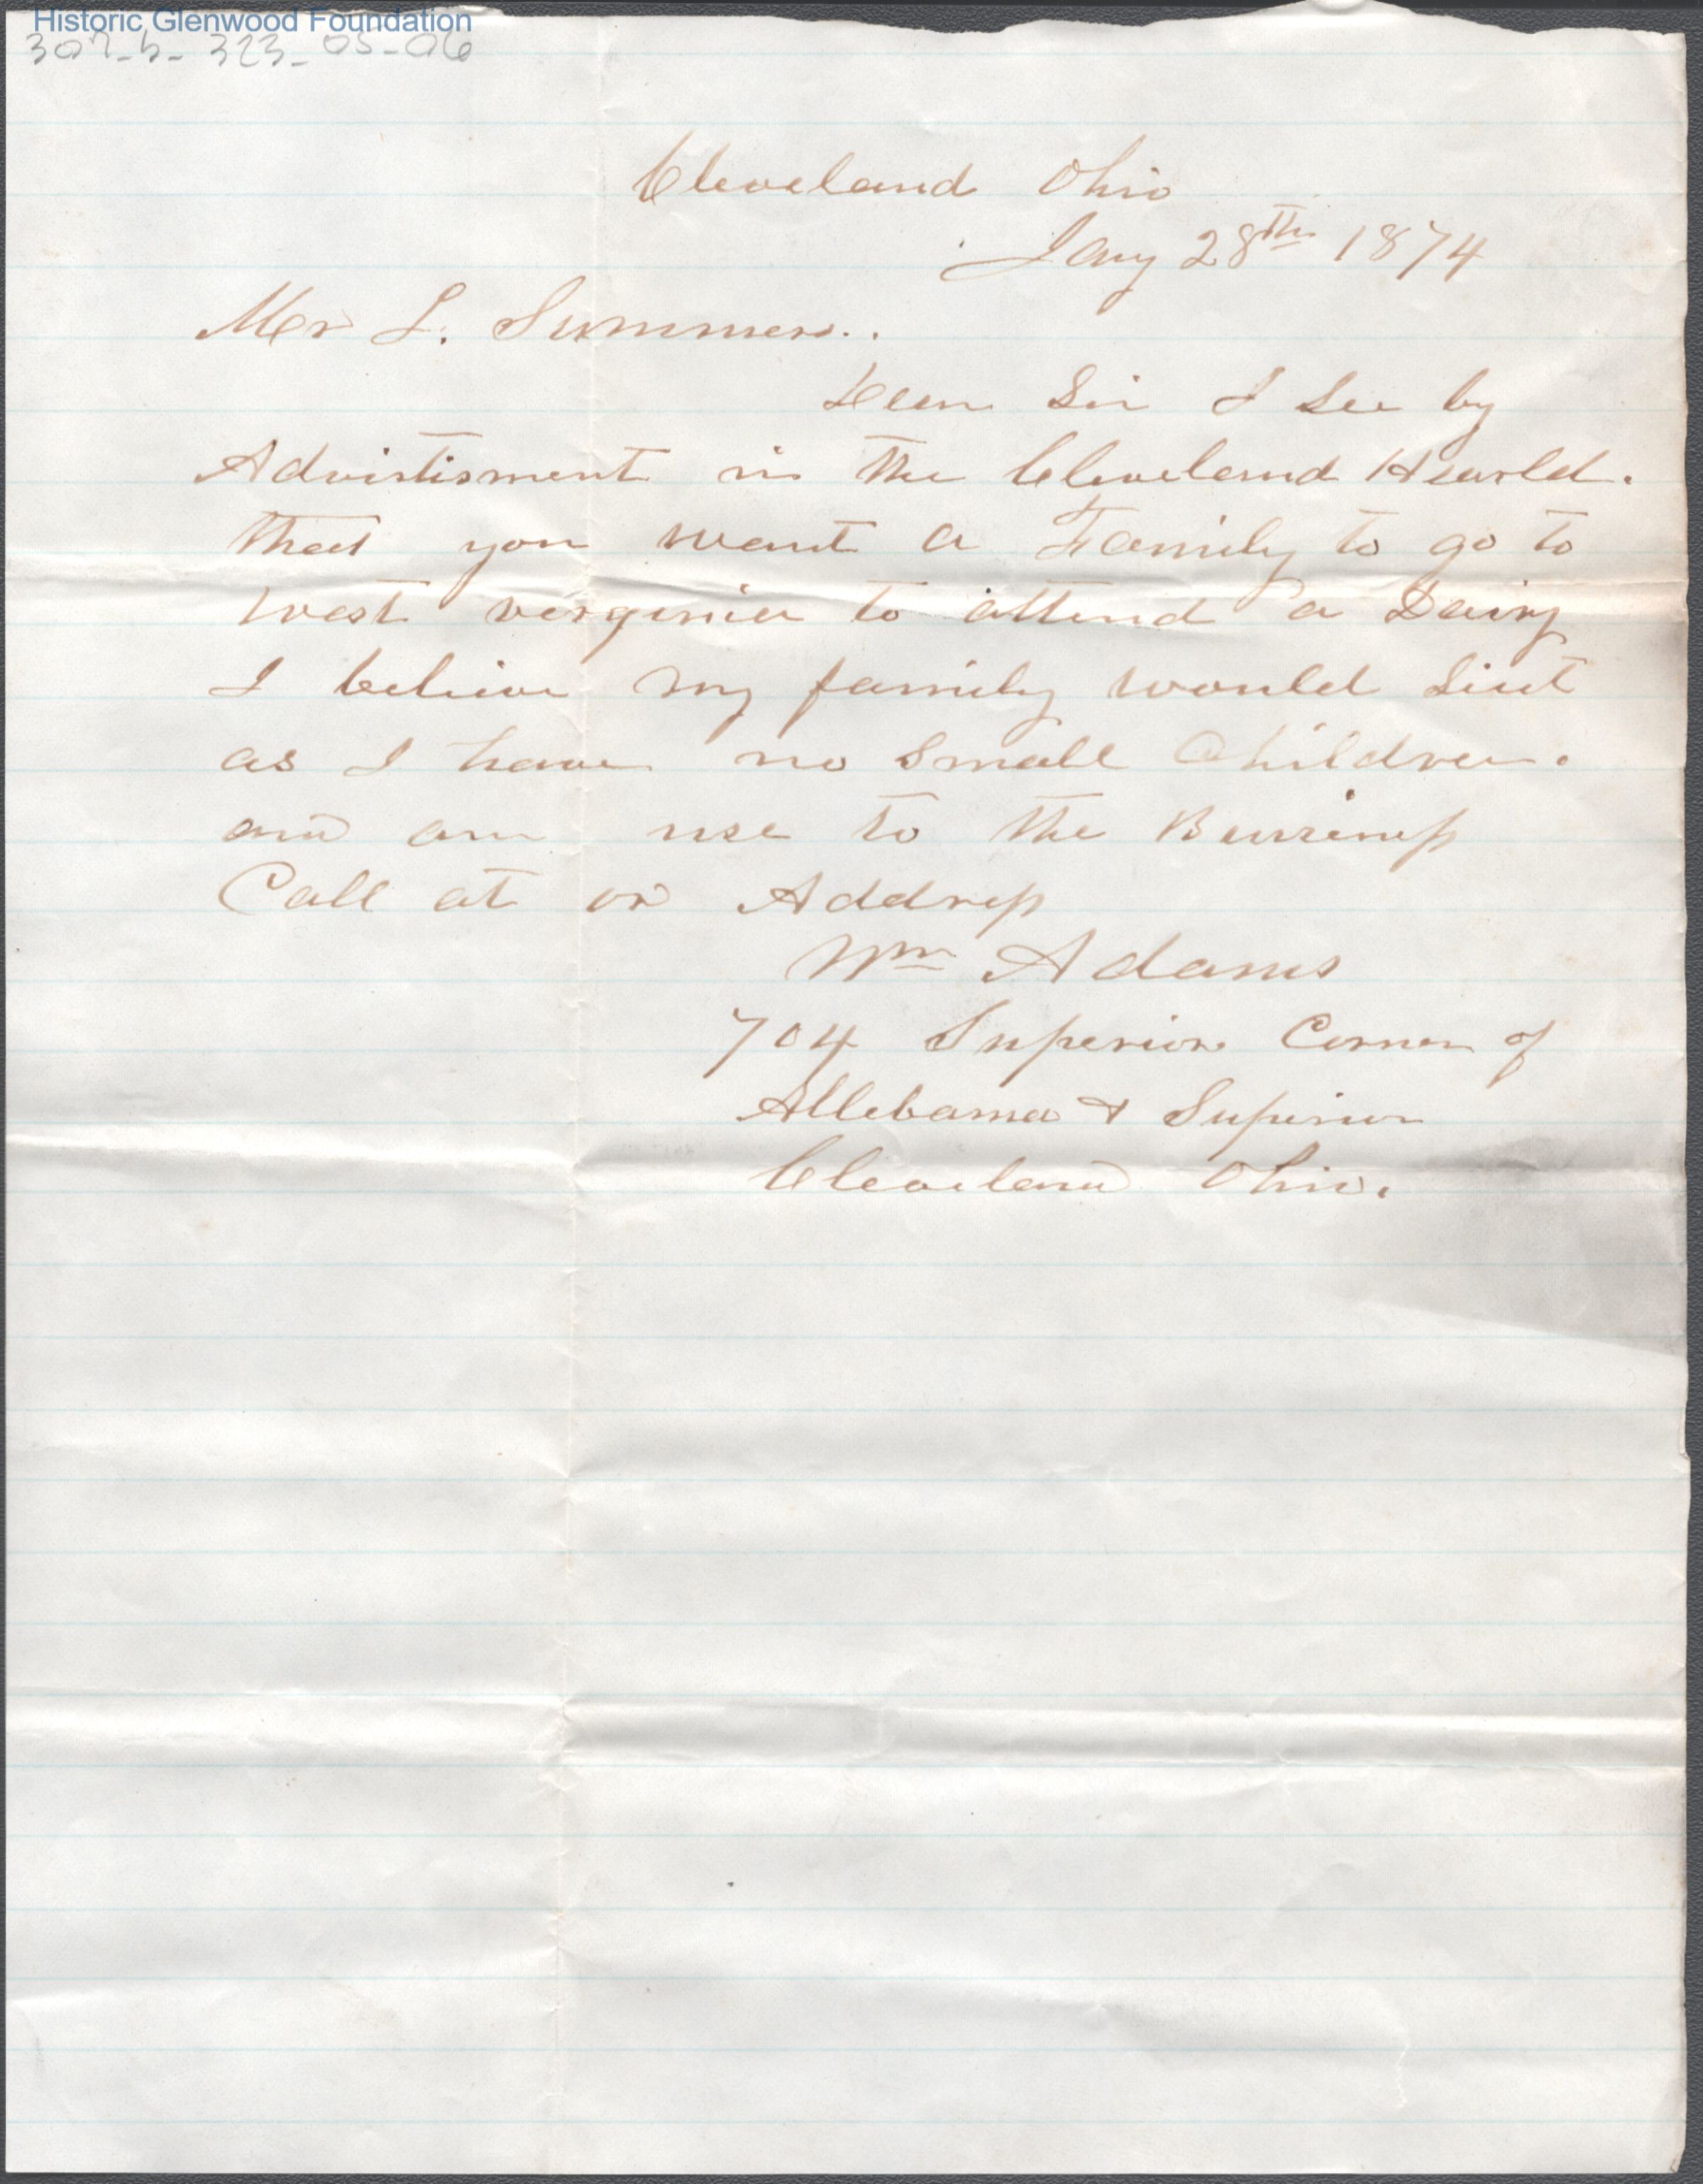 Historic Glenwood Foundation
307-b-323-05-06
Cleveland Ohio
Jany 28th 1874
Mr L. Summers.
Dear Sir I See by
Advirtisment in the Cleveland Hearld.
that you want a Family to go to
West verginia to attend a Dairy
I believe my family would Siut
as I have no Small Children.
and am use to the Bussiness
Call at or Address
Wm Adams
704 Superior Corner of
Allebama & Superior
Cleveland Ohio.